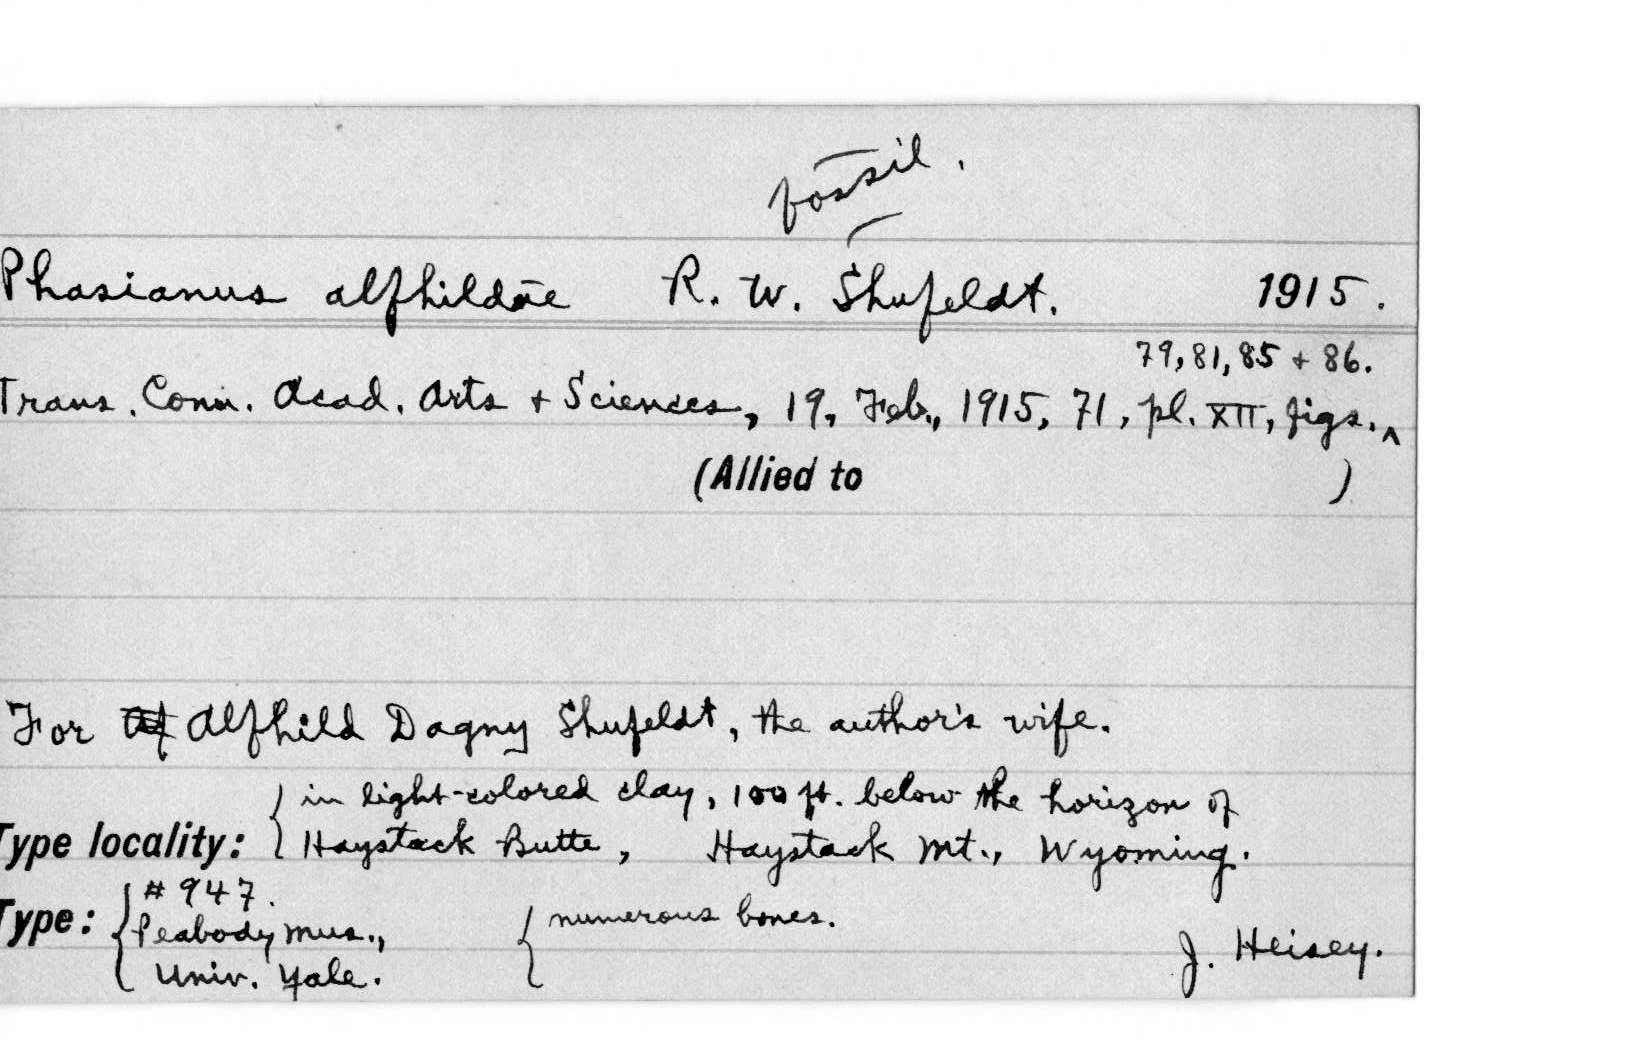 fossil.
Phasianus alfhildae R. W. Shufeldt. 1915.
79, 81, 85 + 86.
Trans. Conn. Acad. Arts + Sciences, 19, Feb., 1915, 71, pl. XII, figs. ^
(Allied to )
For Alfhild Dagny Shufeldt, the author's wife.
{ in light-colored clay, 100 ft. below the horizon of
Type locality: Haystack Butte, Haystack Mt., Wyoming.
# 947.
Type: { Peabody Mus., { numerous bones.
Univ. Yale. J. Heisey.